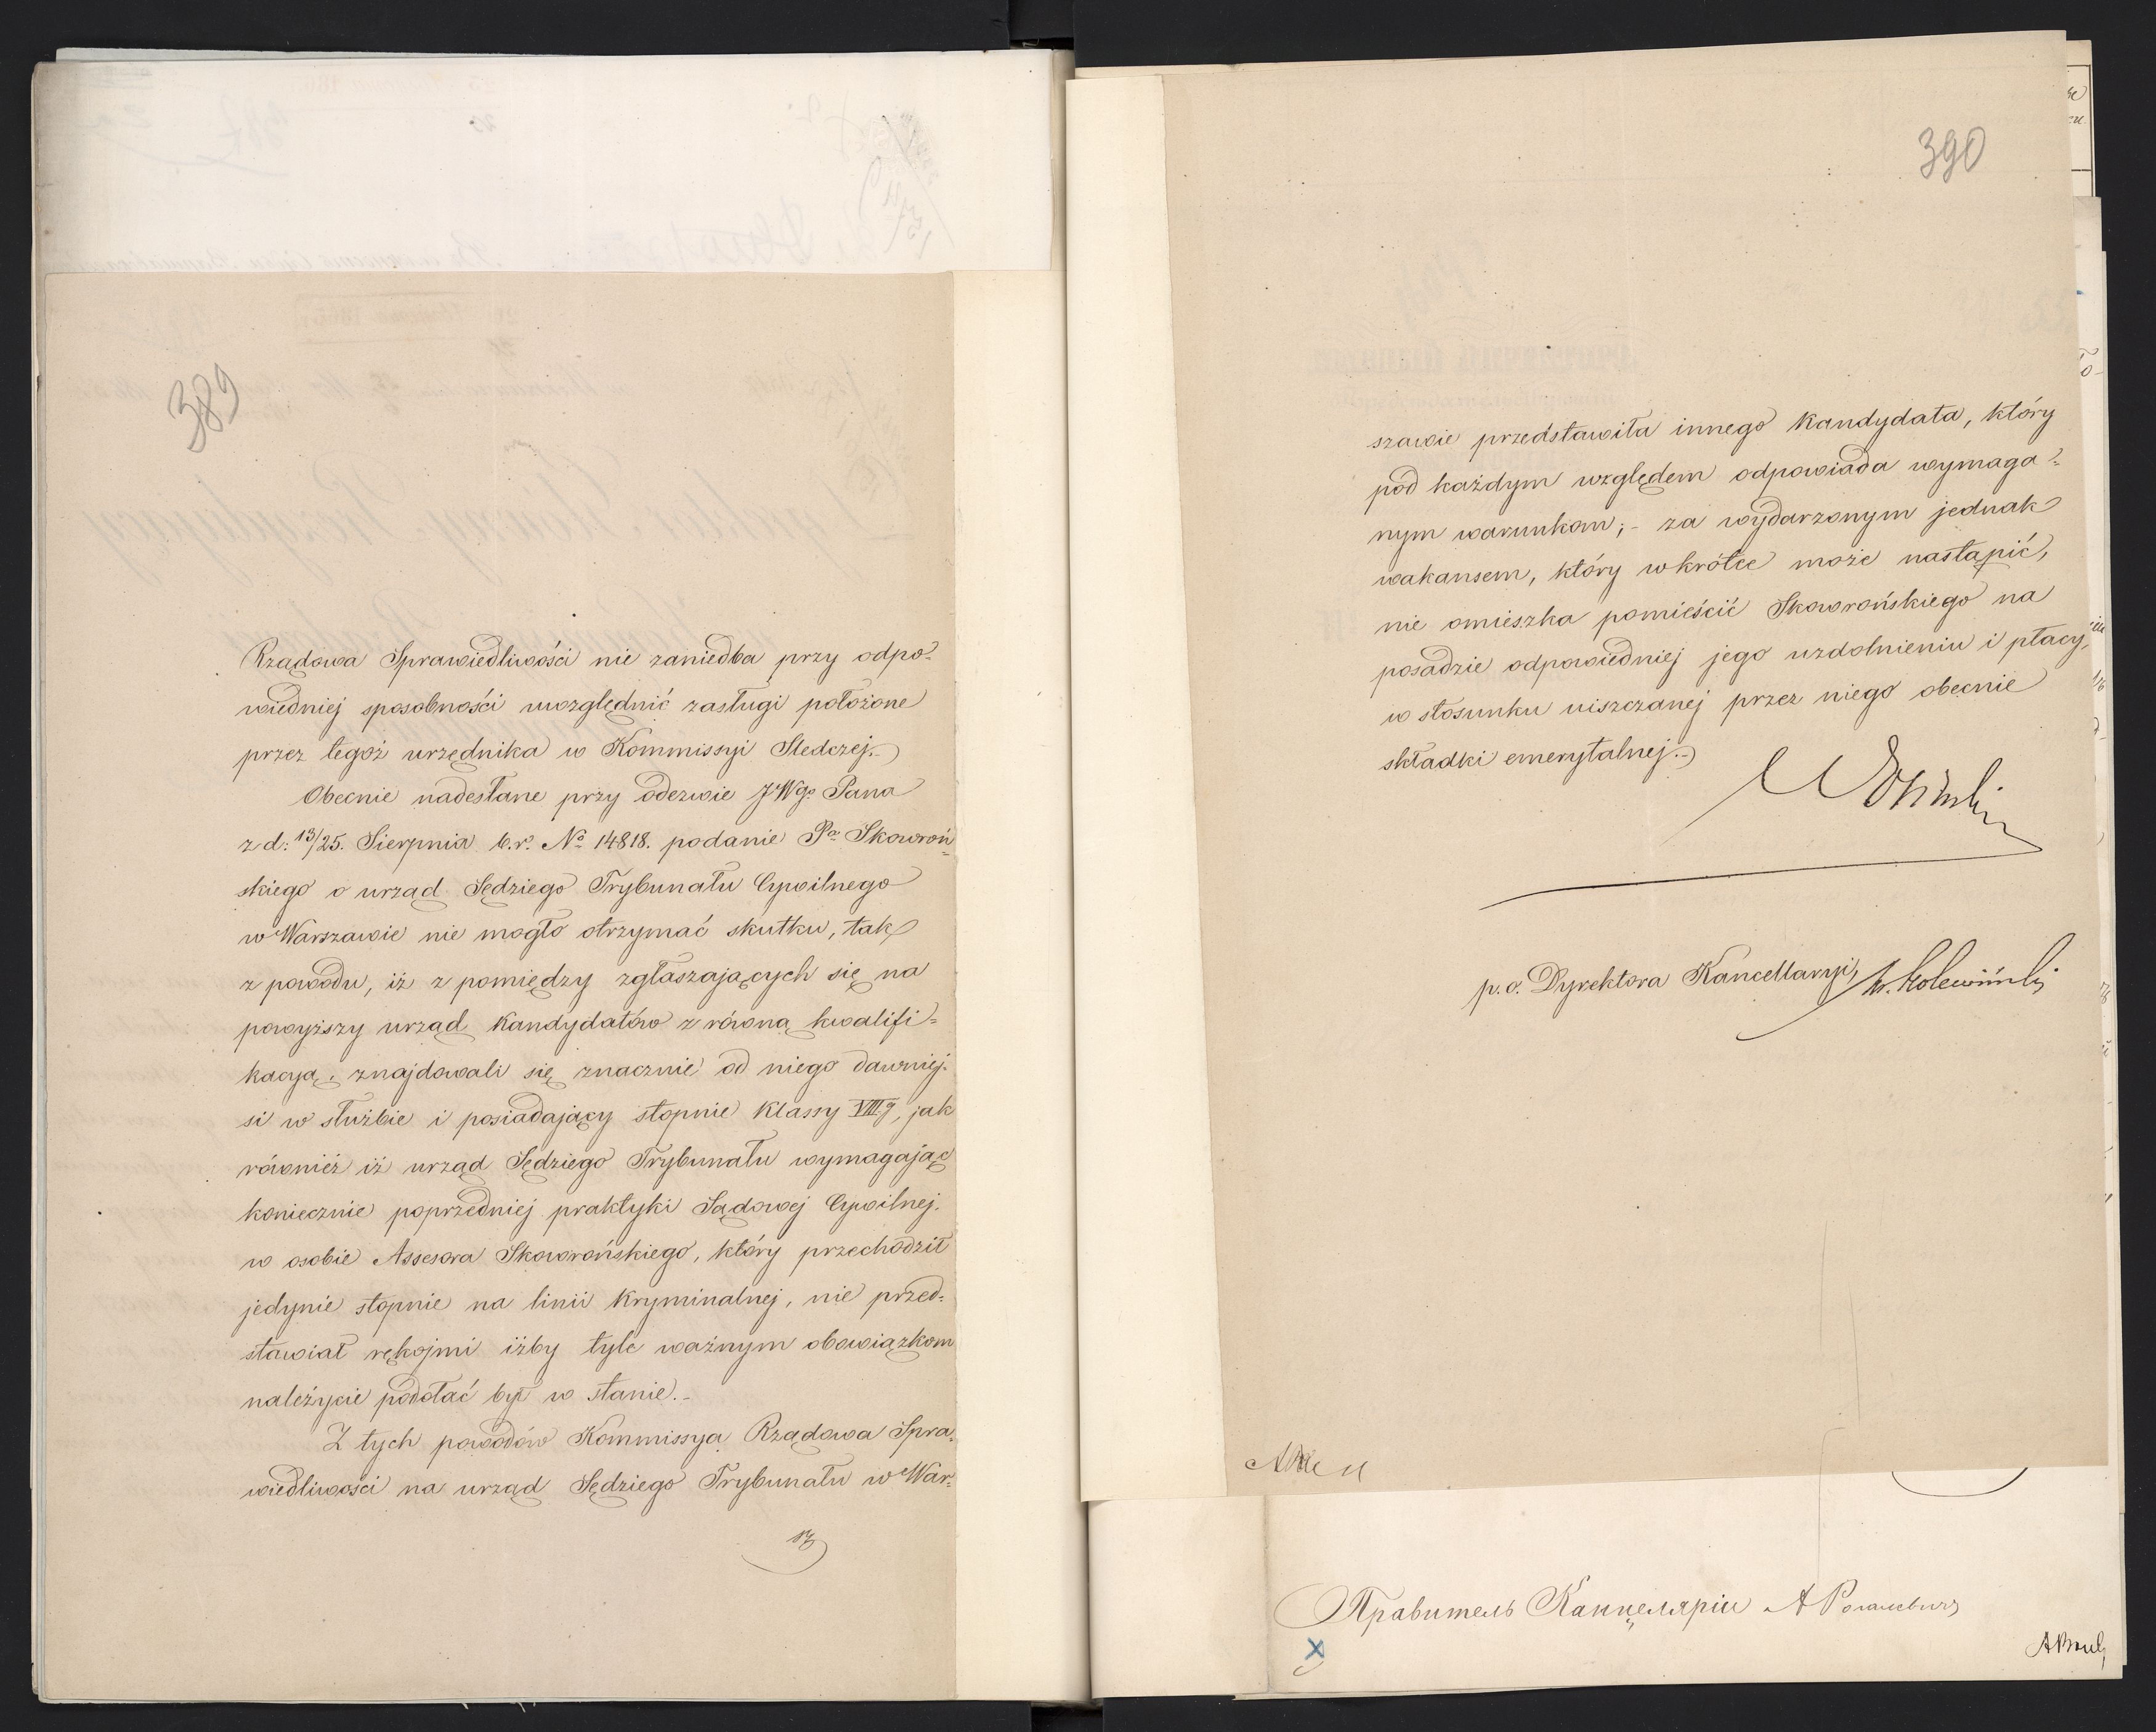 389
Rządowa Sprawiedliwości nie zaniedba przy odpo-
wiedniej sposobności uwzględnić zasługi położone
przez tegoż urzędnika w Kommissyi Sledczej.-
Obecnie nadesłane przy odezwie JWgo Pana
z d: 13/25. Sierpnia b.r. No 14818. podanie Pa Skowroń-
skiego o urząd Sędziego Trybunału Cywilnego
w Warszawie nie mogło otrzymać skutku, tak
z powodu, iż z pomiędzy zgłaszających się na
powyższy urząd Kandydatów z równą kwalifi-
kacyą, znajdowali się znacznie od niego dawniej-
si w służbie i posiadający stopnie Klassy VIIIej, jak
również iż urząd Sędziego Trybunału wymagając
koniecznie poprzedniej praktyki Sądowej Cywilnej.
w osobie Assesora Skowrońskiego, który przechodził
jedynie stopnie na linii Kryminalnej, nie przed-
stawiał rękojmi iżby tyle ważnym obowiązkom
należycie podołać był w stanie.-
Z tych powodów Kommissya Rządowa Spra-
wiedliwości na urząd Sędziego Trybunału w War-
390
szawie przedstawiła innego Kandydata, który
pod każdym względem odpowiada wymaga-
nym warunkom;- za wydarzonym jednak
wakansem, który wkrótce może nastąpić,
nie omieszka pomieścić Skowrońskiego na
posadzie odpowiedniej jego uzdolnieniu i płacy,
w stosunku uiszczanej przez niego obecnie
składki emerytalnej.-
p.o. Dyrektora Kancellaryi,
Правитель Канцеляріи А